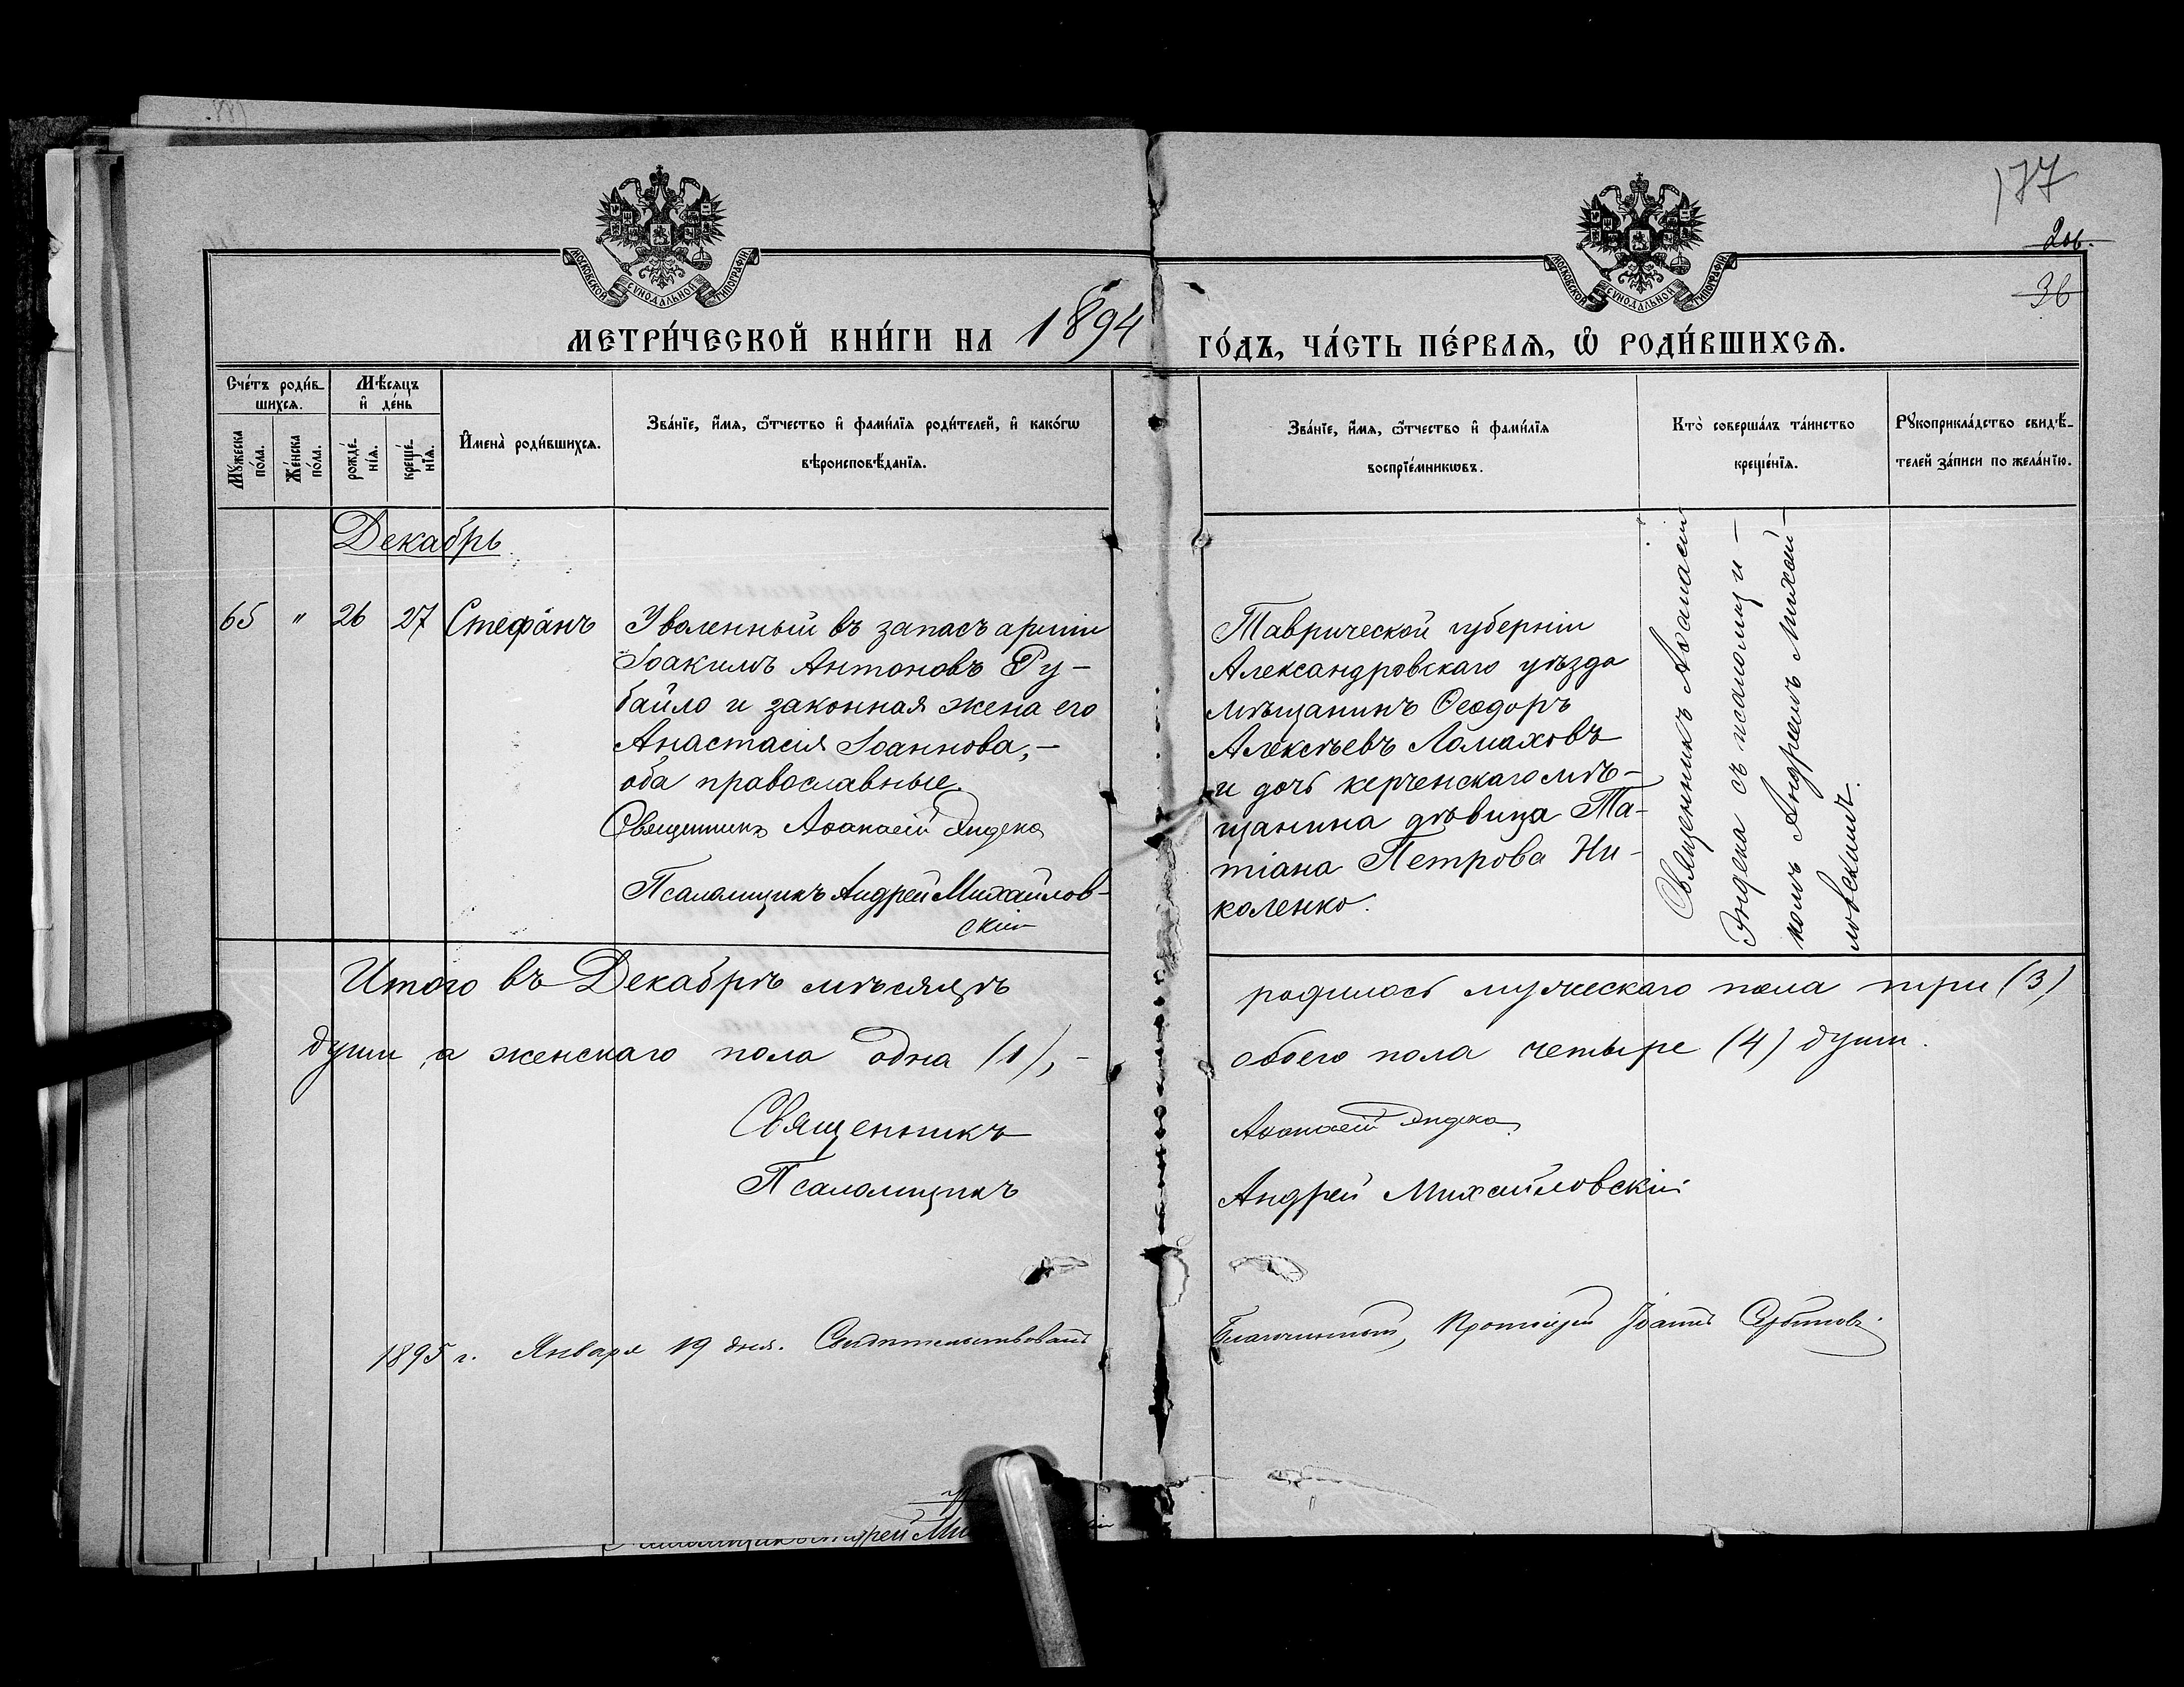 177
2об.
36
МОСКОВСКОЙ СѴНОДАЛЬНОЙ ТИПОГРАФІИ
МОСКОВСКОЙ СѴНОДАЛЬНОЙ ТИПОГРАФІИ
МЕТРИ́ЧЕСКОЙ КНИ́ГИ НА 1894 ГО́ДЪ, ЧА́СТЬ ПЕ́РВАѦ, Ѡ҆ РОДИ́ВШИХСѦ.
Сче́тъ роди́в-
шихсѧ.
Мѣ́сѧцъ
и҆ де́нь
Мꙋ́жеска
по́ла.
Же́нска
по́ла.
рожде́-
нїѧ.
креще́-
нїѧ.
И҆мена̀ роди́вшихсѧ.
Зва́нїе, и҆́мѧ, ѻ҆́тчество и҆ фами́лїѧ роди́телей, и҆ како́гѡ
вѣроисповѣ́данїѧ.
Зва́нїе, и҆́мѧ, ѻ҆́тчество и҆ фами́лїѧ
воспрїе́мникѡвъ.
Кто̀ соверша́лъ та́инство
креще́нїѧ.
Рꙋкоприкла́дство свидѣ́-
телей за́писи по жела́нїю.
Декабрь
65 " 26 27 Стефанъ
Уволенный въ запасъ арміи
Іоакимъ Антоновъ Ру-
байло и законная жена его
Анастасія Іоаннова,-
оба православные.
Священникъ Аѳанасій Дяндека
Псаломщикъ Андрей Михайлов-
скій
Таврической губерніи
Александровскаго уѣзда
мѣщанинъ Ѳеодоръ
Алексѣевъ Ломаховъ
и дочь керченскаго мѣ-
щанина дѣвица Та-
тіана Петрова Ни-
коленко.
Священникъ Аѳанасій
съ псаломщи-
комъ Андреемъ Михай-
ловскимъ.
Итого въ Декабрѣ мѣсяцѣ родилось мужескаго пола три (3)
души, а женскаго пола одна (1),- обоего пола четыре (4) души.
Священникъ Аѳанасій
Псаломщикъ Андрей Михайловскій
1895 г. Января 19 дня. Свидѣтельствовалъ Благочинный, Протоіерей Іоаннъ Сербиновъ